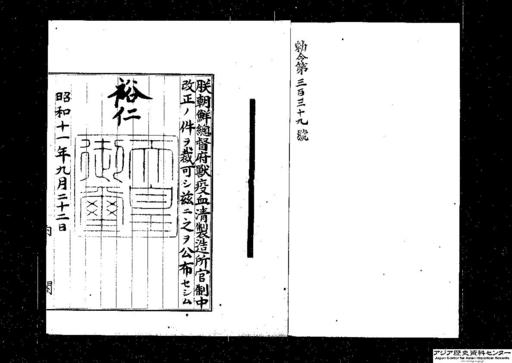 勅令第三百三十九號
朕朝鮮總督府獸疫血清製造所官制中
改正ノ件ヲ裁可シ茲ニ之ヲ公布セシム
裕仁
天皇御璽
昭和十一年九月二十二日
内閣
アジア歴史資料センター
Japan Center for Asian Historical Records